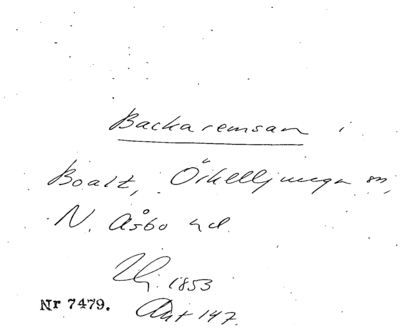 Backaremsan i
Boalt, Örkelljunga sn,
N. Åsbo hd.
1853
Nr 7479. Ant 147.